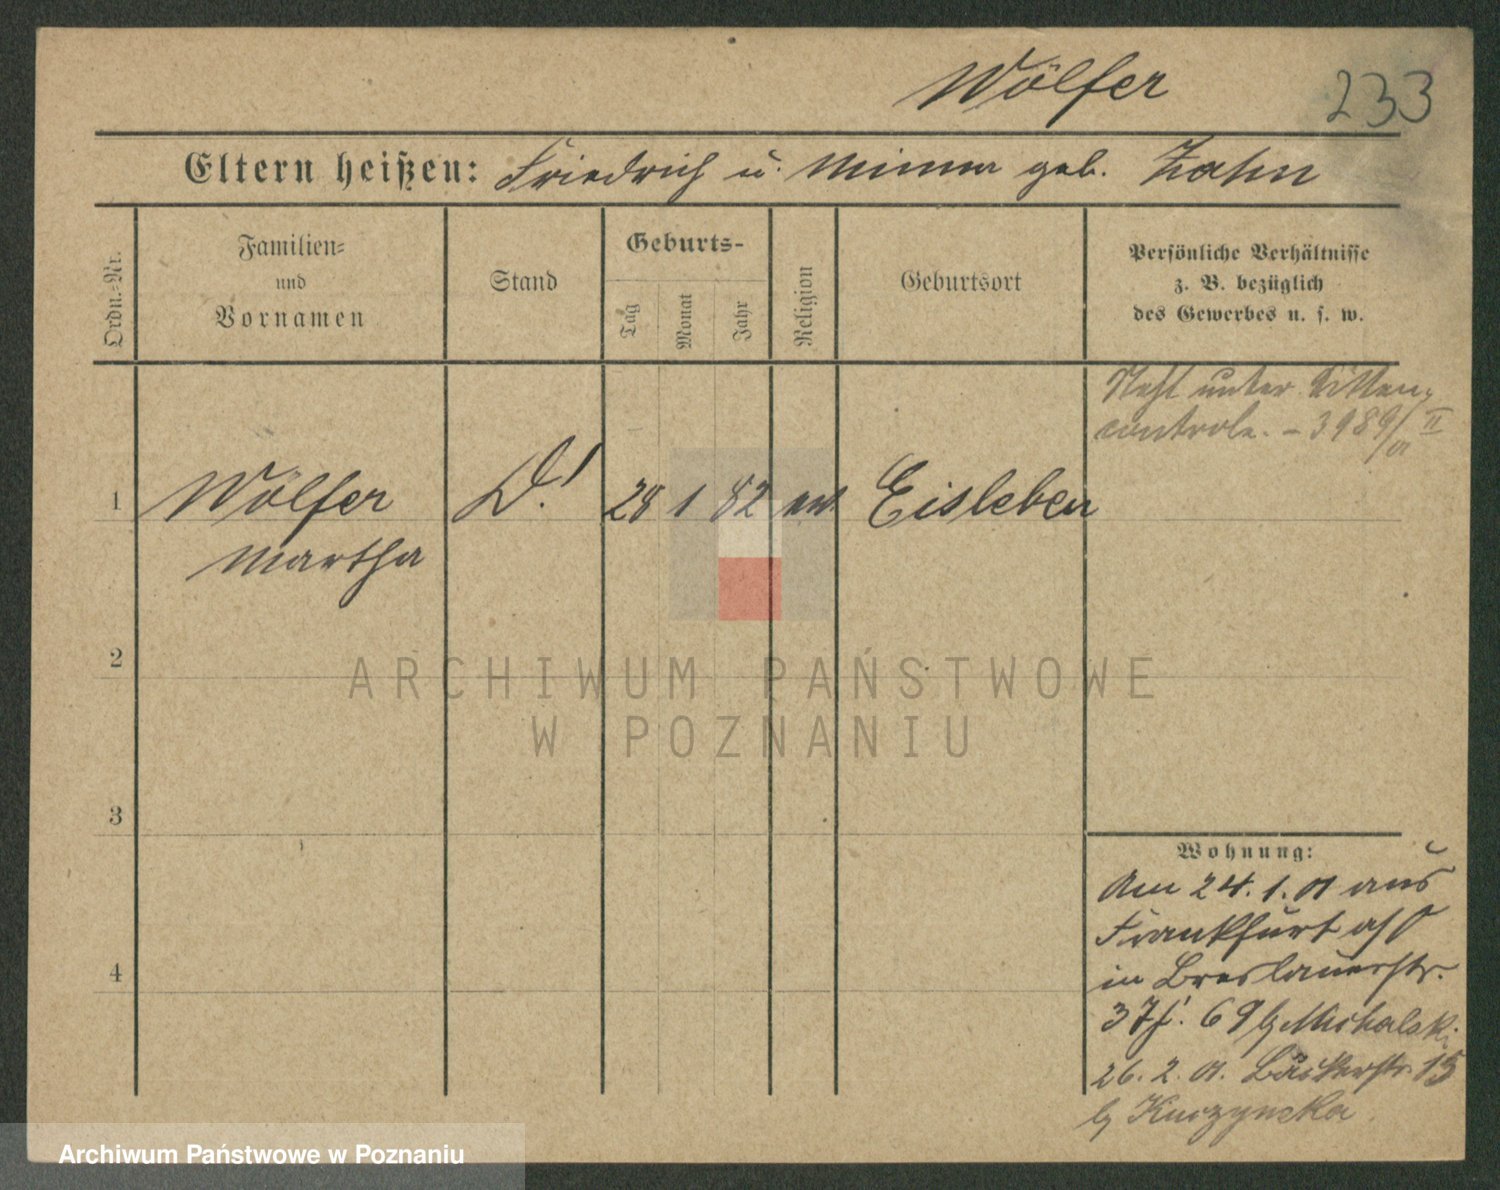 Wölfer 233
Eltern heißen: Friedrich u. Minna geb. Zahn
Ordn.-Nr.
Familien-
und
Vornamen
Stand
Geburts-
Tag
Monat
Jahr
Religion
Geburtsort
Persönliche Verhältnisse
z. B. bezüglich
des Gewerbes u. s. w.
Steht unter Sitten-
controle. – 3989/01 II
1 Wölfer D.! 28 1 82 ev. Eisleben
Martha
2
3
4
Wohnung:
Am 24. 1. 01 aus
Frankfurt a/O
in Breslauerstr.
37 69 b/ Michalski
26. 2. 01. Bäckerstr. 15
b/ Kuczynska
ARCHIWUM PAŃSTWOWE
W POZNANIU
Archiwum Państwowe w Poznaniu